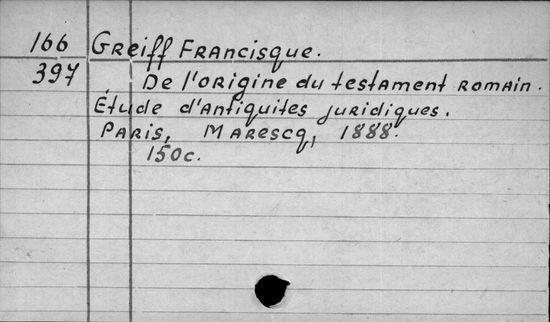 166 Greiff Francisque.
397 De l'origine du testament romain.
Étude d'antiquites juridiques.
Paris, Marescq, 1888.
150c.